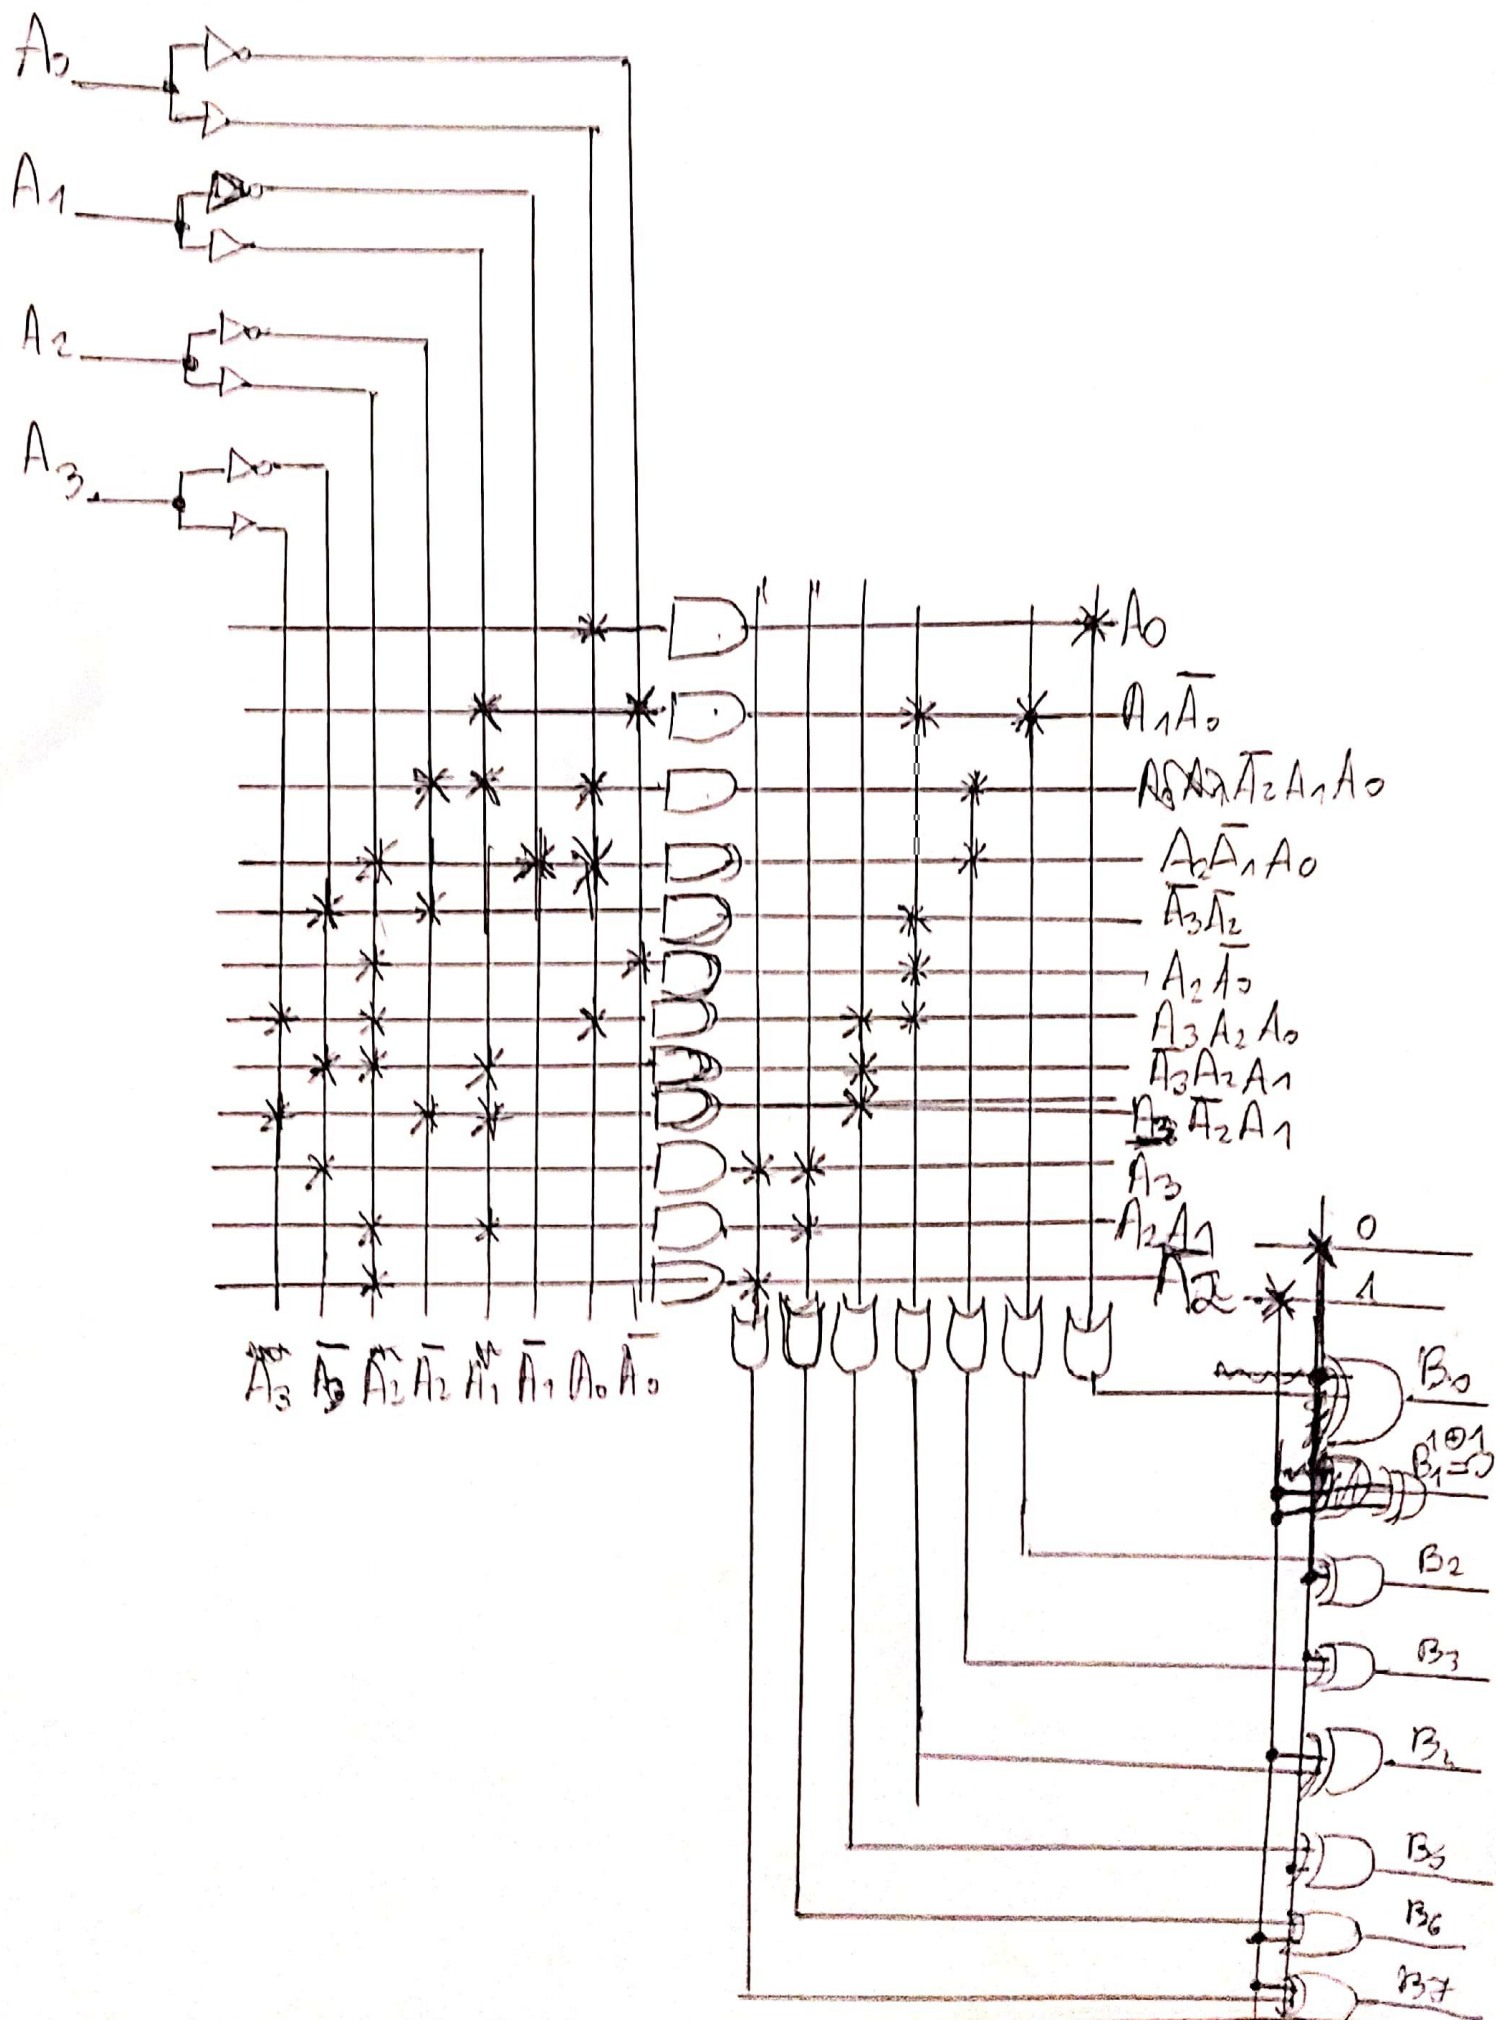 A₀
A₁
A₂
A₃
A₀
A₁A̅₀
A̅₂A₁A₀
A₂A̅₁A₀
A̅₃A̅₂
A₂A̅₀
A₃A₂A₀
A̅₃A₂A₁
A₃A̅₂A₁
A̅₃
A₂A₁
0
A₂
1
A₃ A̅₃ A₂ A̅₂ A₁ A̅₁ A₀ A̅₀
B₀
1⊕1
B₁=0
B₂
B₃
B₄
B₅
B₆
B₇